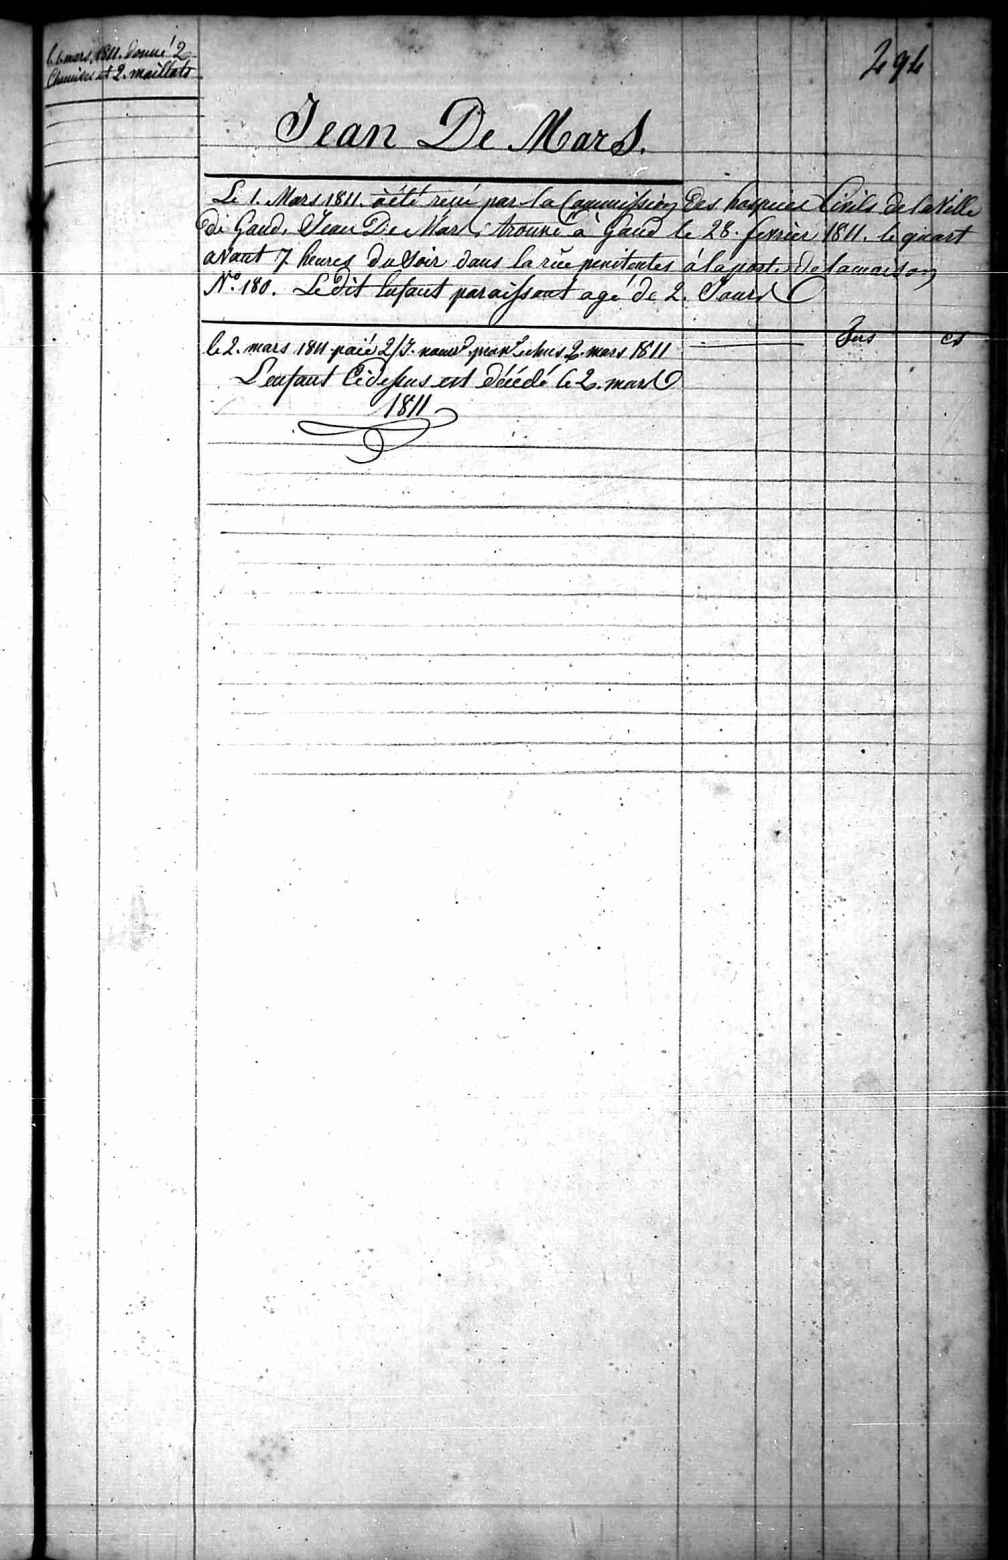 le 1. mars, 1811. donné 2
Chemises et 2. maillots
294
Jean De Mars.
Le 1. Mars 1811. à été reçu par la Commission des hospices Civils de la Ville
de Gand, Jean De Mars, trouvé à Gand le 28. fevrier 1811. le quart
avant 7 heures du Soir dans la rüe penitentes à la porte de la maison
N.º 180. Le dit Enfant paraissant agé de 2. Jours
le 2. mars 1811 paié 2/3. echus 2. mars 1811
L'enfant Cidessus est décédé le 2. mars
1811